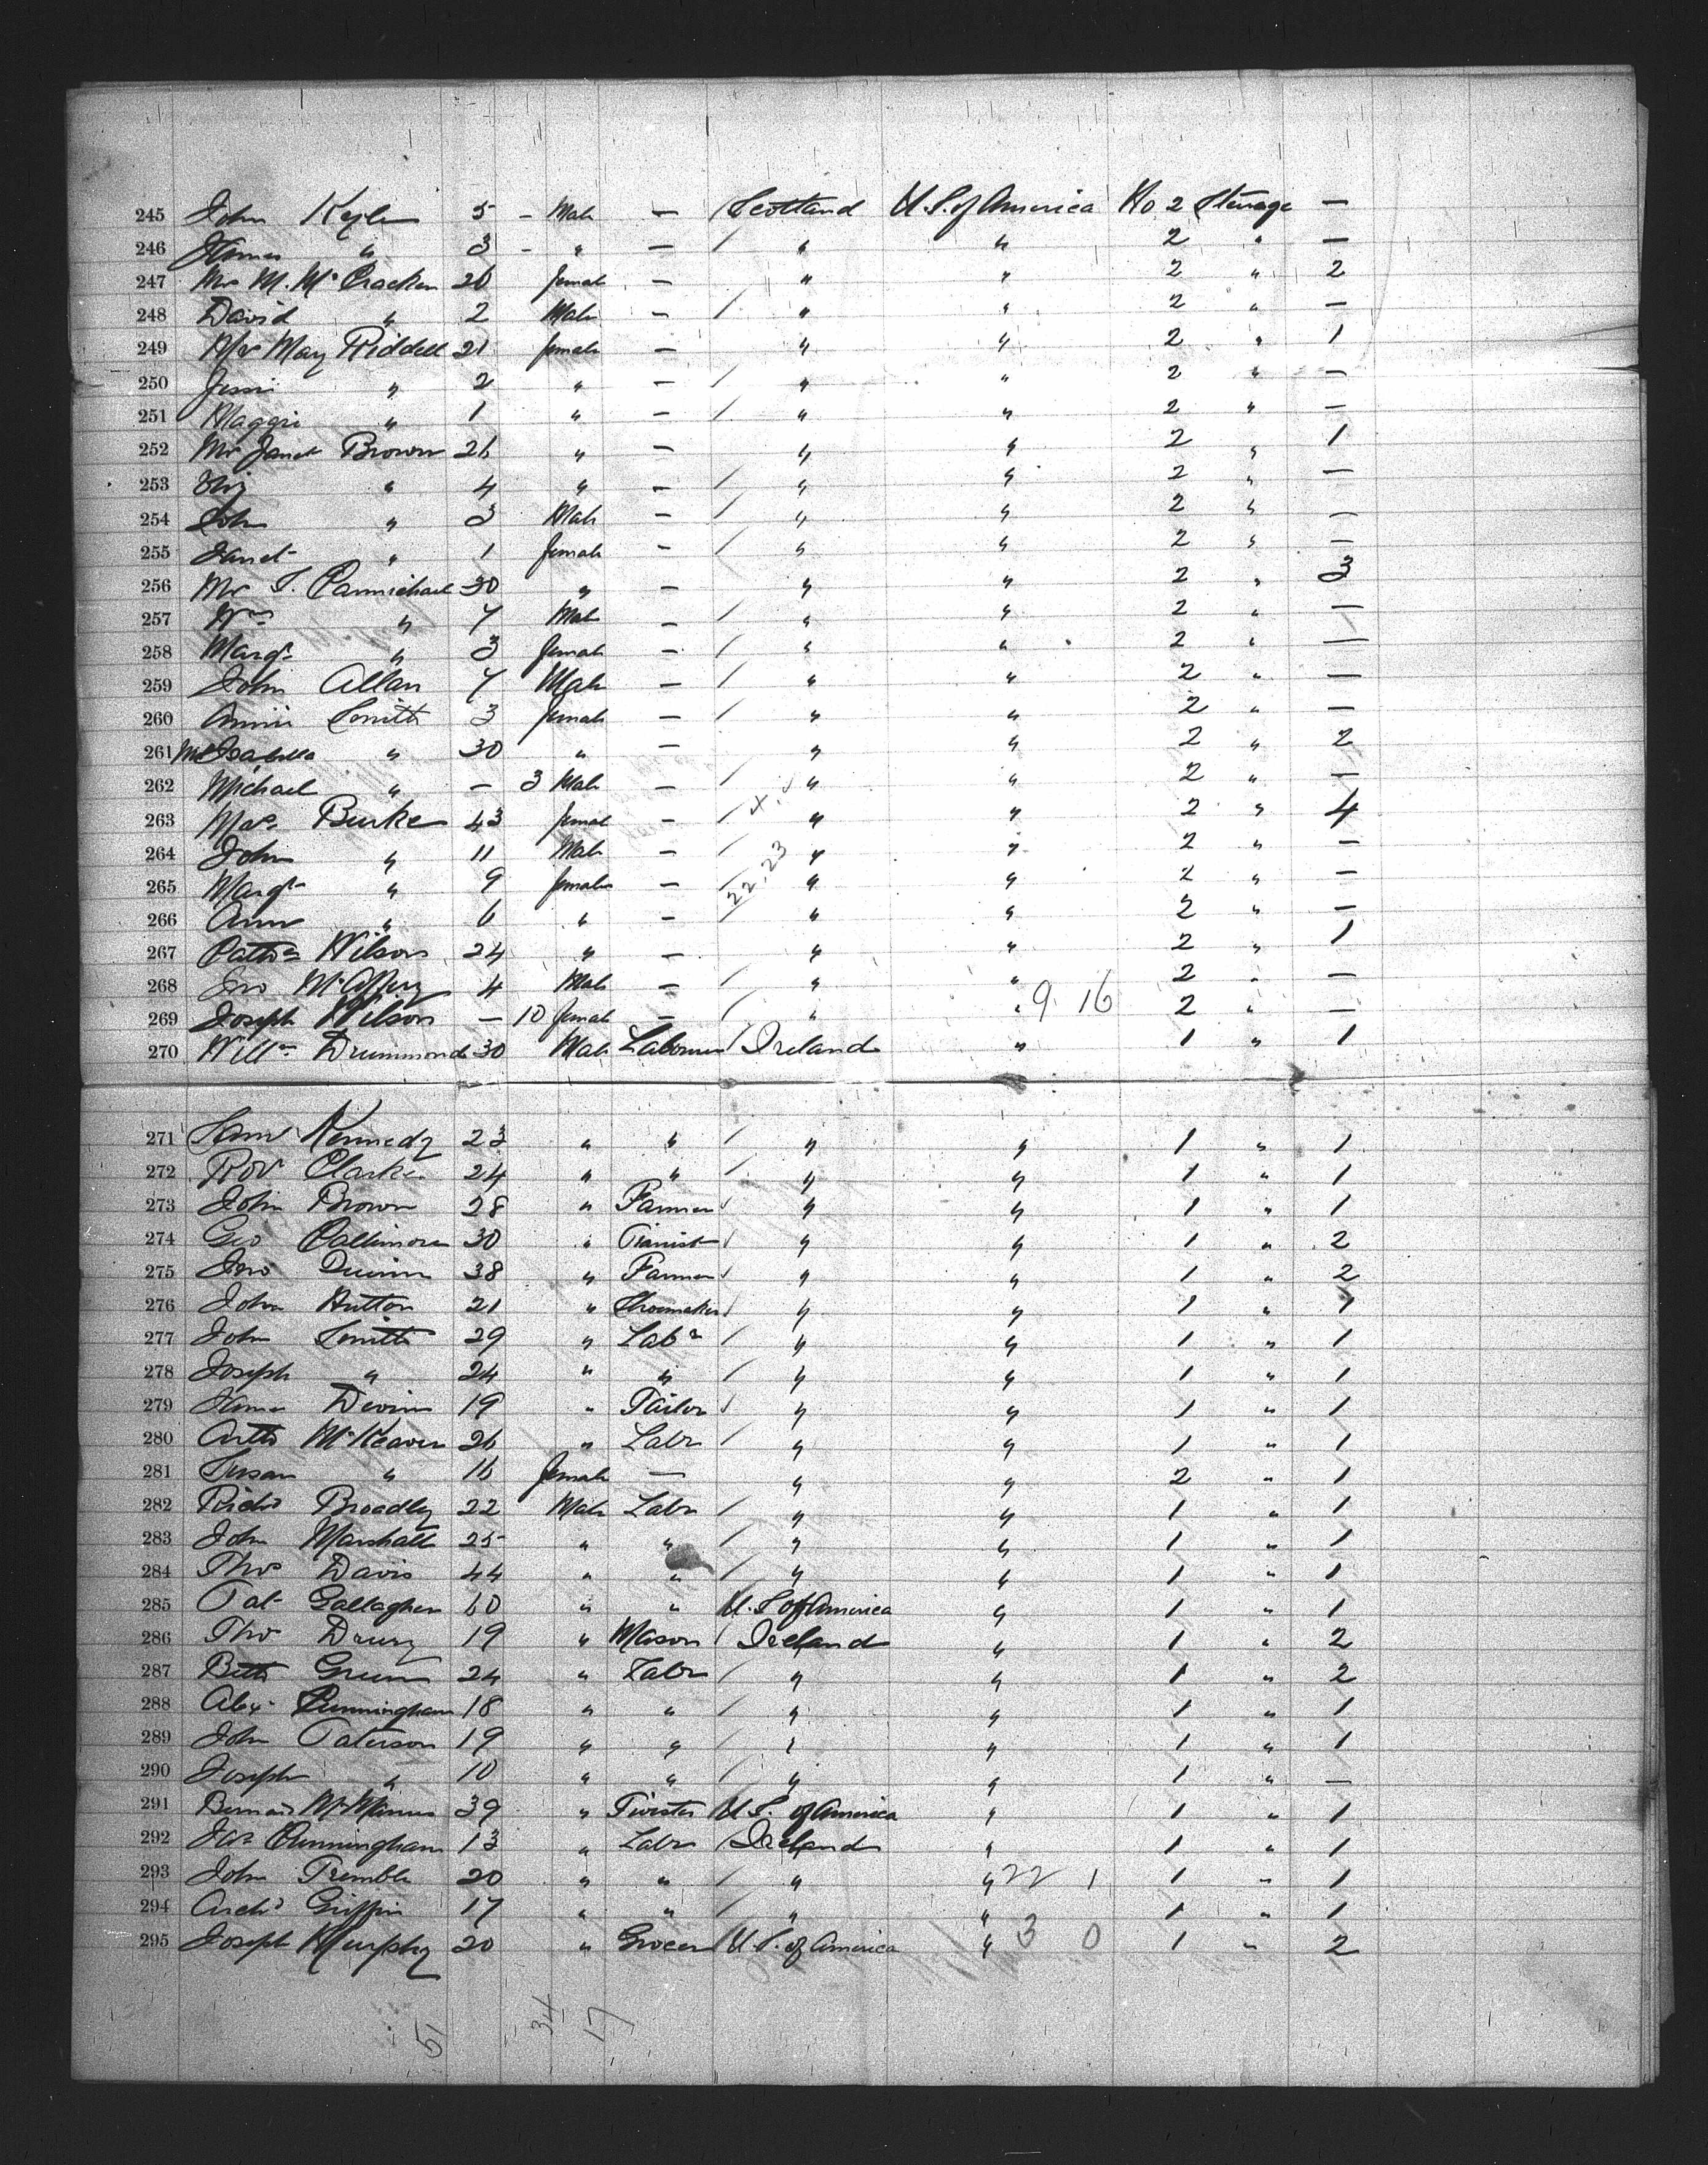 245 John Kyle 5 - Male — / Scotland U.S. of America No 2 Steerage —
246 James " 3 - " — / " " 2 " —
247 Mrs M. McCracken 26 female — " " 2 " 2
248 David " 2 Male — / " " 2 " —
249 Mrs May Riddell 21 female — " " 2 " 1
250 Jessie " 2 " — / " " 2 " —
251 Maggie " 1 " — / " " 2 " —
252 Mrs Janet Brown 26 " — " " 2 " 1
253 " 4 " — / " " 2 " —
254 John " 3 Male — / " " 2 " —
255 Janet " 1 female — / " " 2 " —
256 Mrs Carmichael 30 " — " " 2 " 3
257 Wm " 7 Male — / " " 2 " —
258 Margt " 3 female — / " " 2 " —
259 John Allan 7 Male — / " " 2 " —
260 Annie Smith 3 female — / " " 2 " —
261 Mrs Isabella " 30 " — " " 2 " 2
262 Michael " — 3 Male — / " " 2 " —
263 Burke 43 female — / " " 2 " 4
264 John " 11 Male — / 22.23 " " 2 " —
265 Margt " 9 female — / " " 2 " —
266 Ann " 6 " — / " " 2 " —
267 Wilson 24 " — " " 2 " 1
268 Jno 4 Male — / " " 2 " —
269 Joseph Wilson — 10 female — / " " 9 16 2 " —
270 Willm Drummond 30 Male Labourer / Ireland " 1 " 1
271 Saml Kennedy 23 " " / " " 1 " 1
272 Robt Clarke 24 " " / " " 1 " 1
273 John Brown 28 " Farmer / " " 1 " 1
274 Geo 30 " Pianist / " " 1 " 2
275 Jno Quinn 38 " Farmer / " " 1 " 2
276 John Hutton 21 " Shoemaker / " " 1 " 1
277 John Smith 29 " Labr / " " 1 " 1
278 Joseph " 24 " " / " " 1 " 1
279 James Devin 19 " Tailor / " " 1 " 1
280 Arth McKeaven 26 " Labr / " " 1 " 1
281 Susan " 16 female — " " 2 " 1
282 Richd Broadley 22 Male Labr / " " 1 " 1
283 John Marshall 25 " " / " " 1 " 1
284 Thos Davis 44 " " / " " 1 " 1
285 Pat Gallagher 60 " " U.S of America " 1 " 1
286 Thos Drury 19 " Mason / Ireland " 1 " 2
287 Green 24 " Labr / " " 1 " 2
288 Alex Cunningham 18 " " / " " 1 " 1
289 John Paterson 19 " " / " " 1 " 1
290 Joseph " 10 " " / " " 1 " —
291 Bernard McManus 39 " U.S. of America " 1 " 1
292 Jas Cunningham 13 " Labr / Ireland " 1 " 1
293 John Tremble 20 " " / " " 22 1 1 " 1
294 Archd Griffin 17 " " / " " 1 " 1
295 Joseph Murphy 20 " Grocer / U.S. of America " 3 0 1 " 2
51 34 17